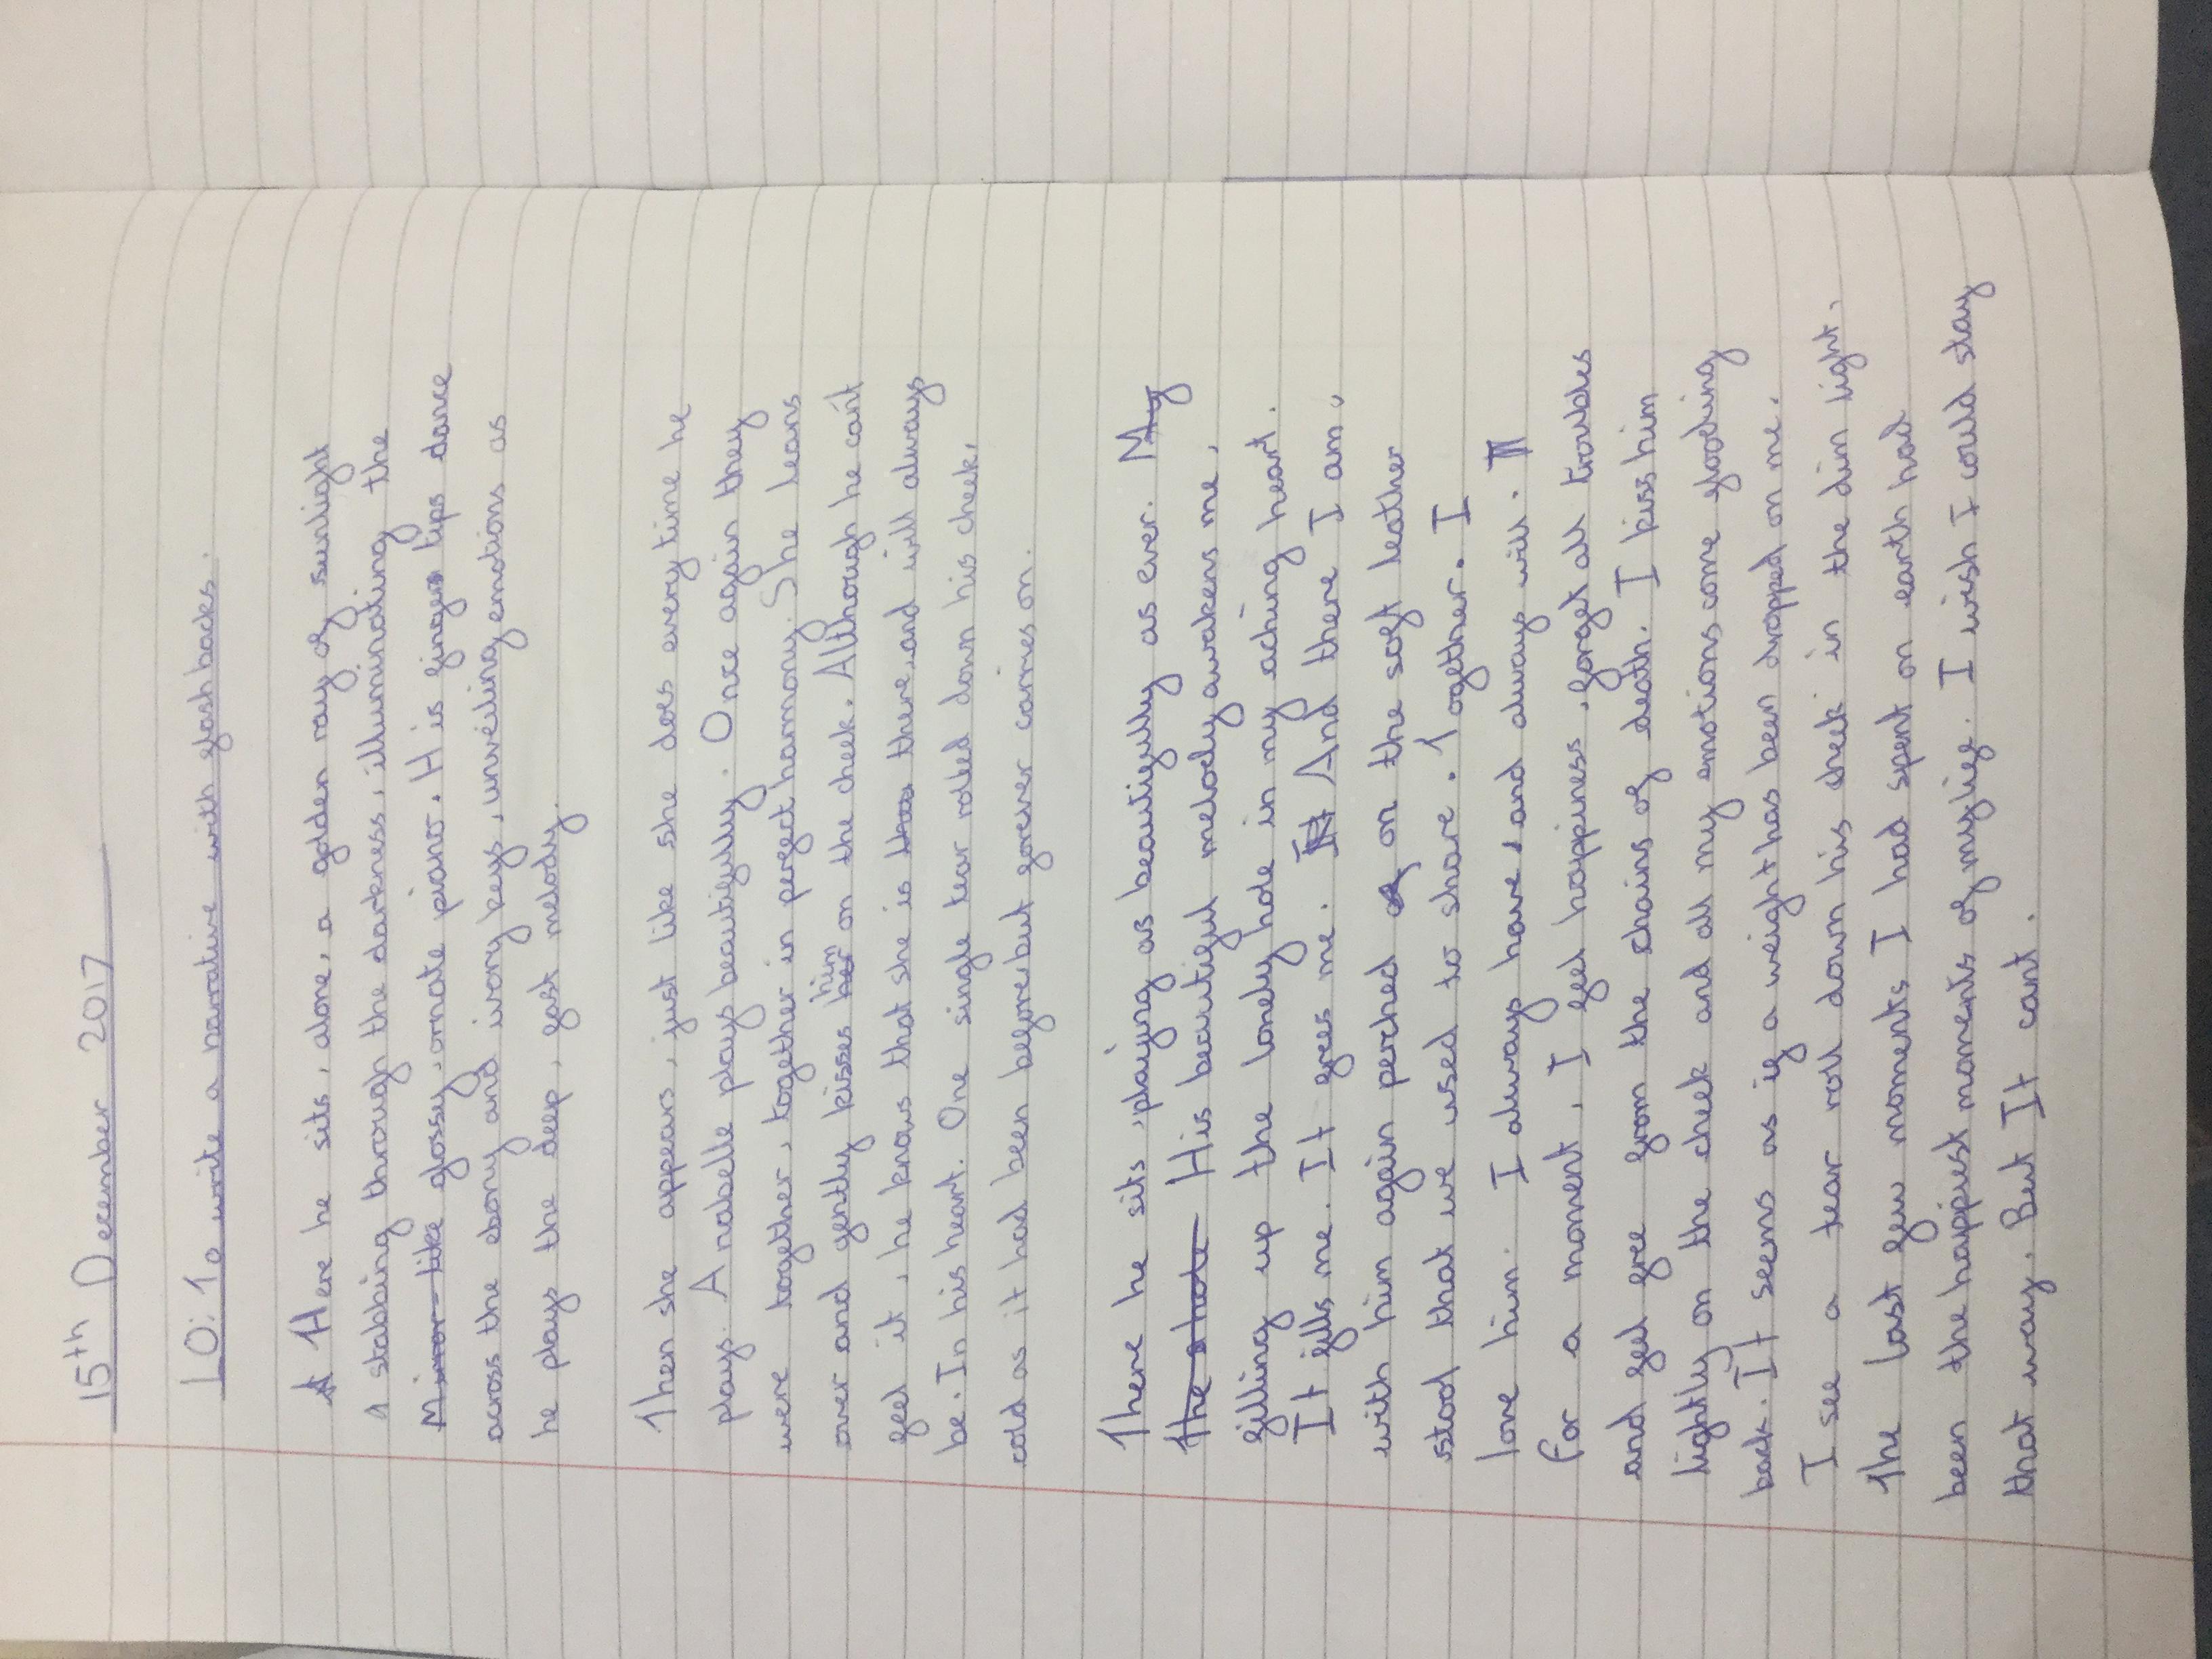 15th December 2017
LO: To write a narrative with flashbacks.
There he sits, alone, a golden ray of sunlight
a stabbing through the darkness, illuminating the
Mirror-like glossy, ornate piano. His finger tips dance
across the ebony and ivory keys, unveiling emotions as
he plays the deep, fast melody.
Then she appears, just like she does every time he
plays. Anabelle plays beautifully. Once again they
were together, together in perfect harmony. She leans
over and gently kisses her him on the cheek. Although he can't
feel it, he knows that she is there and will always
be. In his heart. One single tear rolled down his cheek,
cold as it had been before but forever carries on.
There he sits, playing as beautifully as ever. My
the shade His beautiful melody awakens me,
filling up the lonely hole in my aching heart.
It fills me. It frees me. And there I am,
with him again perched on the soft leather
stool that we used to share. Together. I
love him. I always have, and always will.
For a moment, I feel happiness, forget all troubles
and feel free from the chains of death. I kiss him
lightly on the cheek and all my emotions come flooding
back. It seems as if a weight has been dropped on me.
I see a tear roll down his cheek in the dim light.
The last few moments I had spent on earth had
been the happiest moments of my life. I wish I could stay
that way. But It cant.